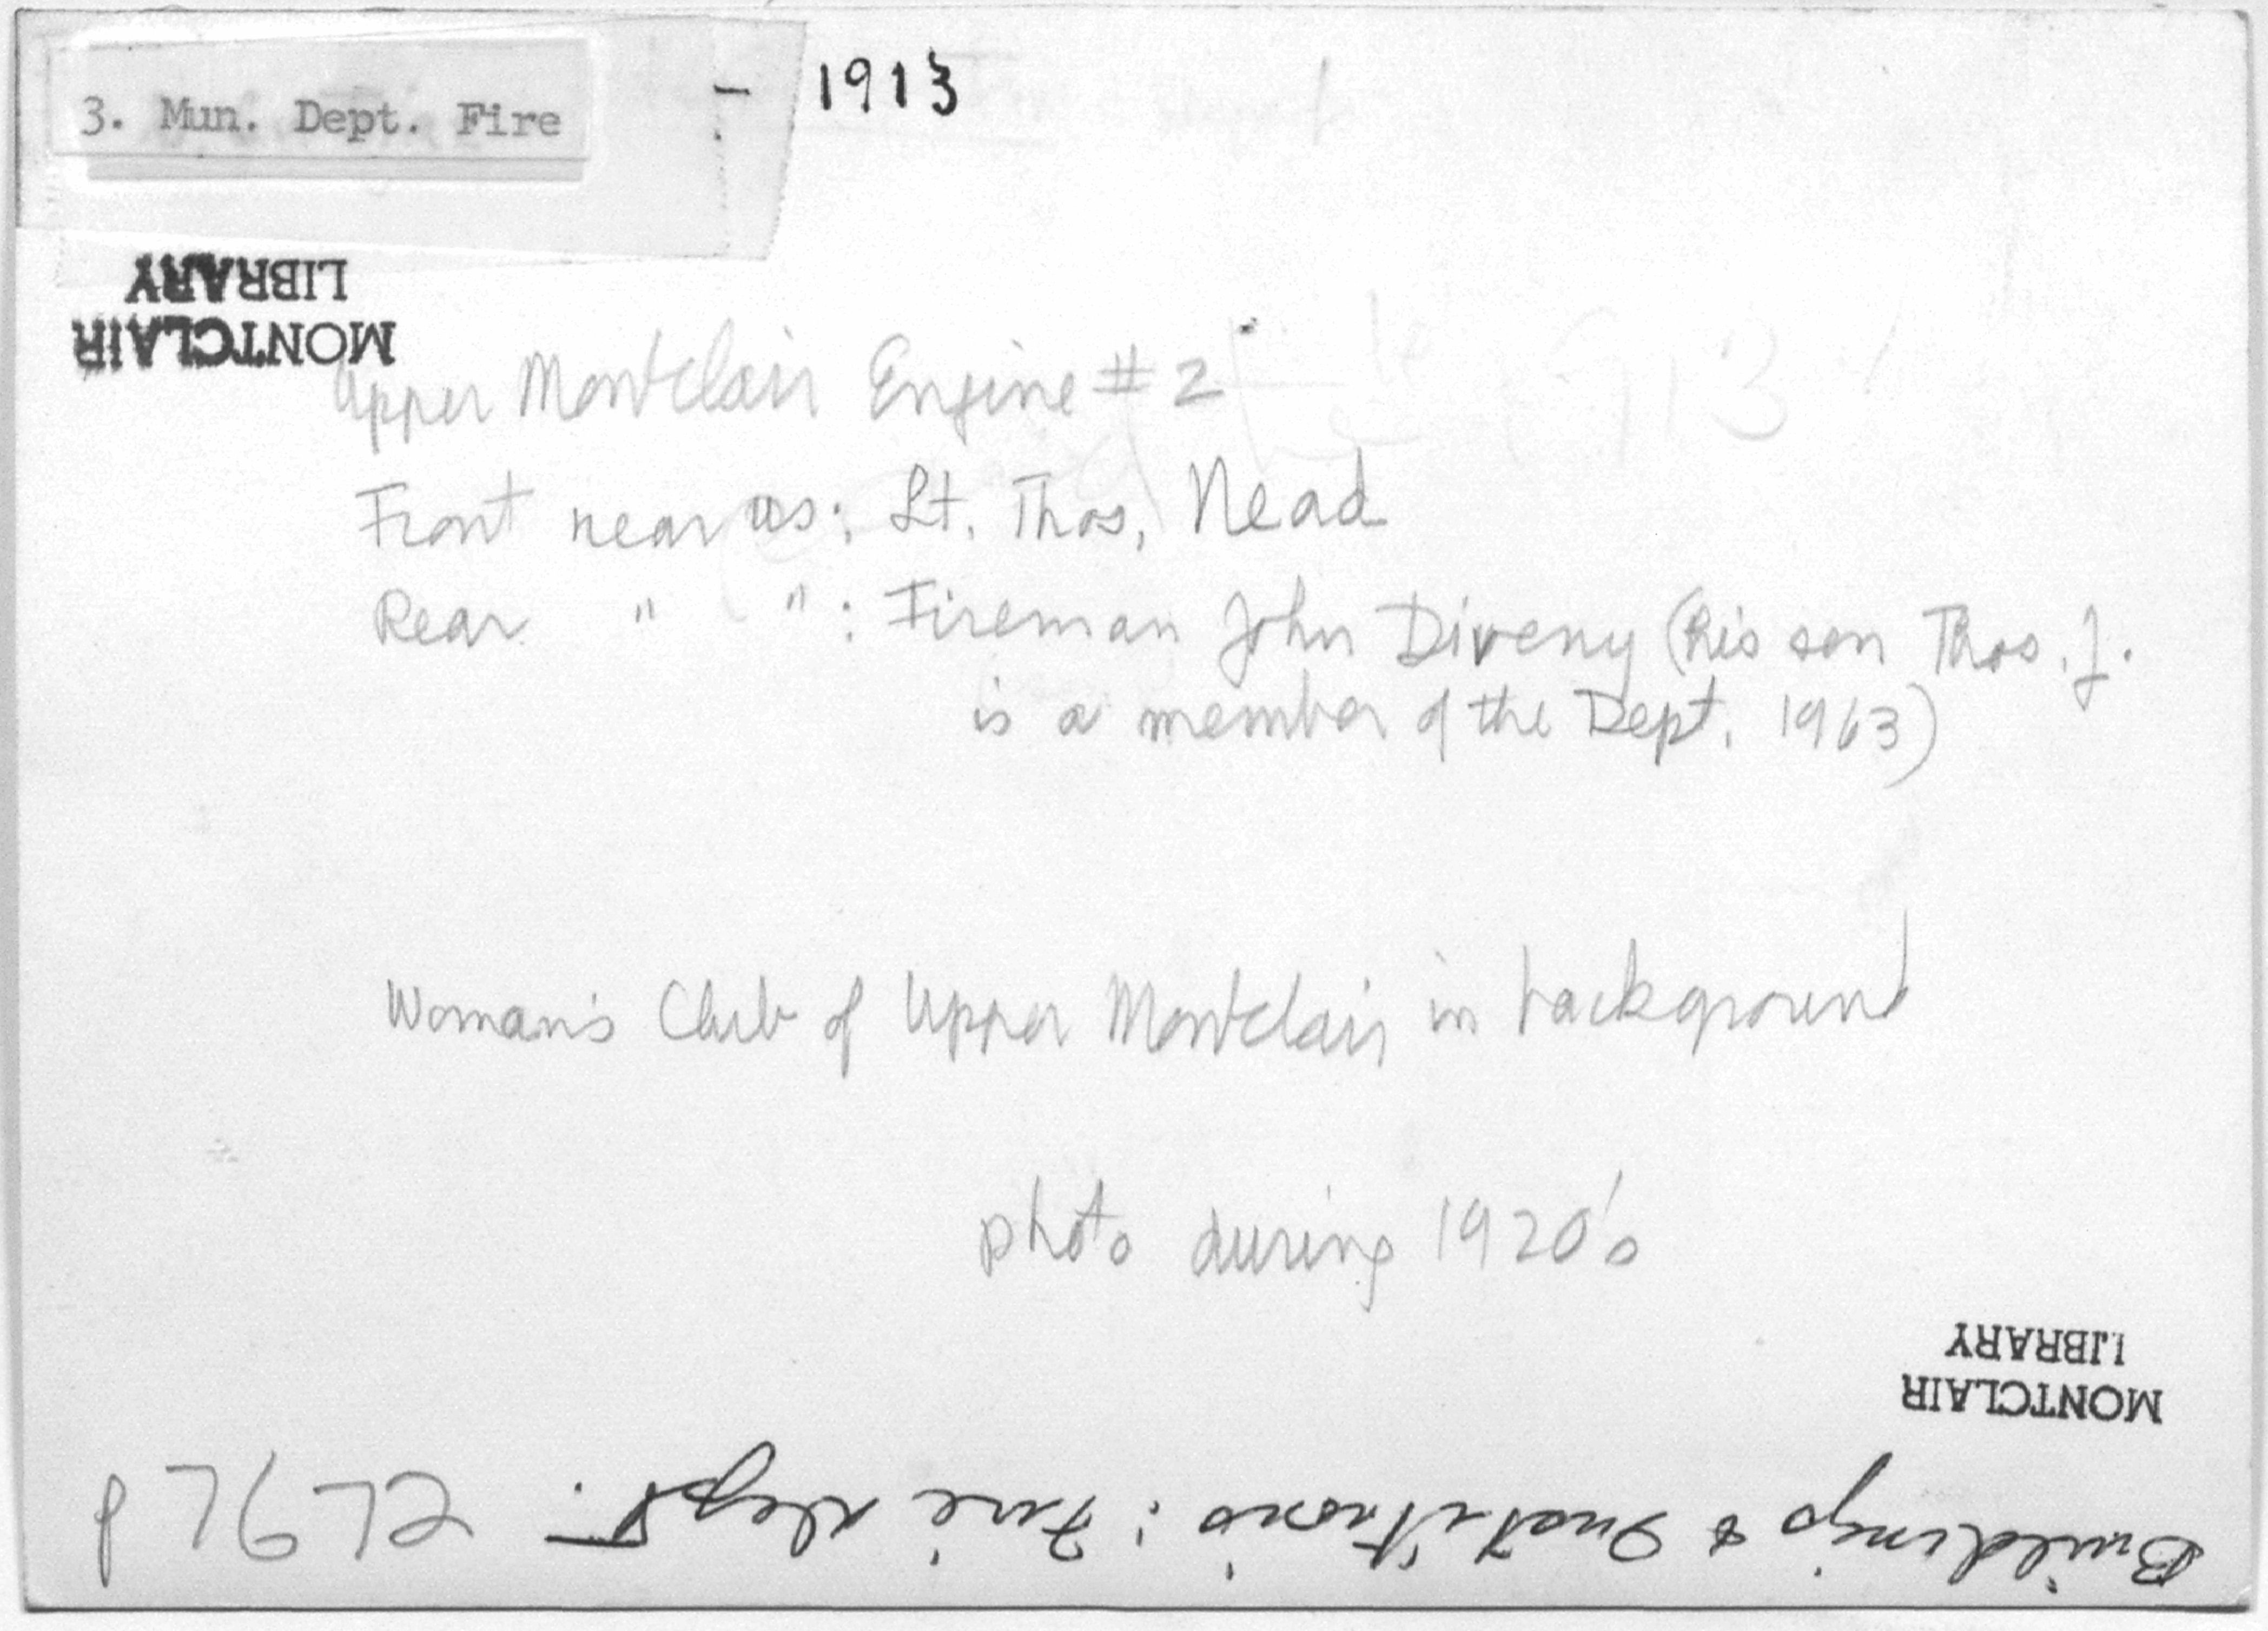 3. Mun. Dept. Fire - 1913
MONTCLAIR
LIBRARY
Upper Montclair Engine #2
Front near us: Lt. Thos. Nead
Rear " " : Fireman John Diveny (his son Thos. J.
is a member of the Dept. 1963)
Woman's Club of Upper Montclair in background
photo during 1920's
MONTCLAIR
LIBRARY
Buildings & Institutions: Fire Dept.
p7672